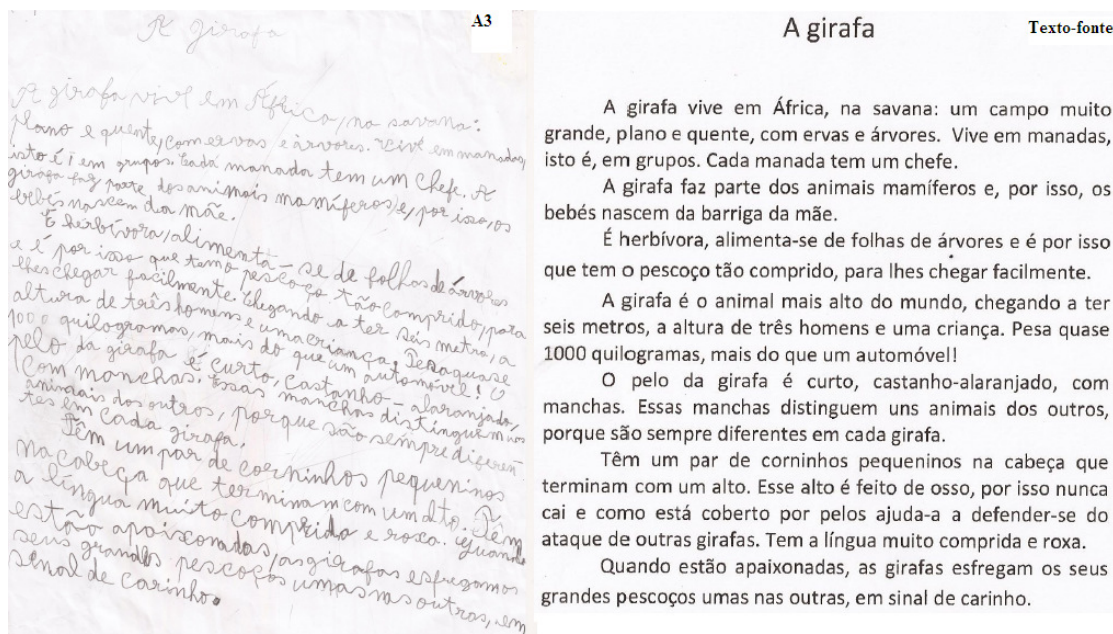 A3
A girafa
A girafa vive em África, na savana:
plano e quente, com ervas e árvores. Vive em manadas,
isto é, em grupos. Cada manada tem um chefe. A
girafa faz parte dos animais mamíferos e, por isso, os
bebés nascem da mãe.
É herbívora, alimenta-se de folhas de árvores
e é por isso que tem o pescoço tão comprido, para
lhes chegar facilmente. Chegando a ter seis metro, a
altura de três homens e uma criança. Pesa quase
1000 quilogramas, mais do que um automóvel! O
pelo da girafa é curto, castanho-alaranjado,
com manchas. Essas manchas distinguem uns
animais dos outros, porque são sempre diferen
tes em cada girafa.
Têm um par de corninhos pequeninos
na cabeça que terminam com um alto. Têm
a língua muito comprida e roxa. Quando
estão apaixonadas, as girafas esfregam os
seus grandes pescoços umas nas outras, em
sinal de carinho.
Texto-fonte
A girafa
A girafa vive em África, na savana: um campo muito
grande, plano e quente, com ervas e árvores. Vive em manadas,
isto é, em grupos. Cada manada tem um chefe.
A girafa faz parte dos animais mamíferos e, por isso, os
bebés nascem da barriga da mãe.
É herbívora, alimenta-se de folhas de árvores e é por isso
que tem o pescoço tão comprido, para lhes chegar facilmente.
A girafa é o animal mais alto do mundo, chegando a ter
seis metros, a altura de três homens e uma criança. Pesa quase
1000 quilogramas, mais do que um automóvel!
O pelo da girafa é curto, castanho-alaranjado, com
manchas. Essas manchas distinguem uns animais dos outros,
porque são sempre diferentes em cada girafa.
Têm um par de corninhos pequeninos na cabeça que
terminam com um alto. Esse alto é feito de osso, por isso nunca
cai e como está coberto por pelos ajuda-a a defender-se do
ataque de outras girafas. Tem a língua muito comprida e roxa.
Quando estão apaixonadas, as girafas esfregam os seus
grandes pescoços umas nas outras, em sinal de carinho.